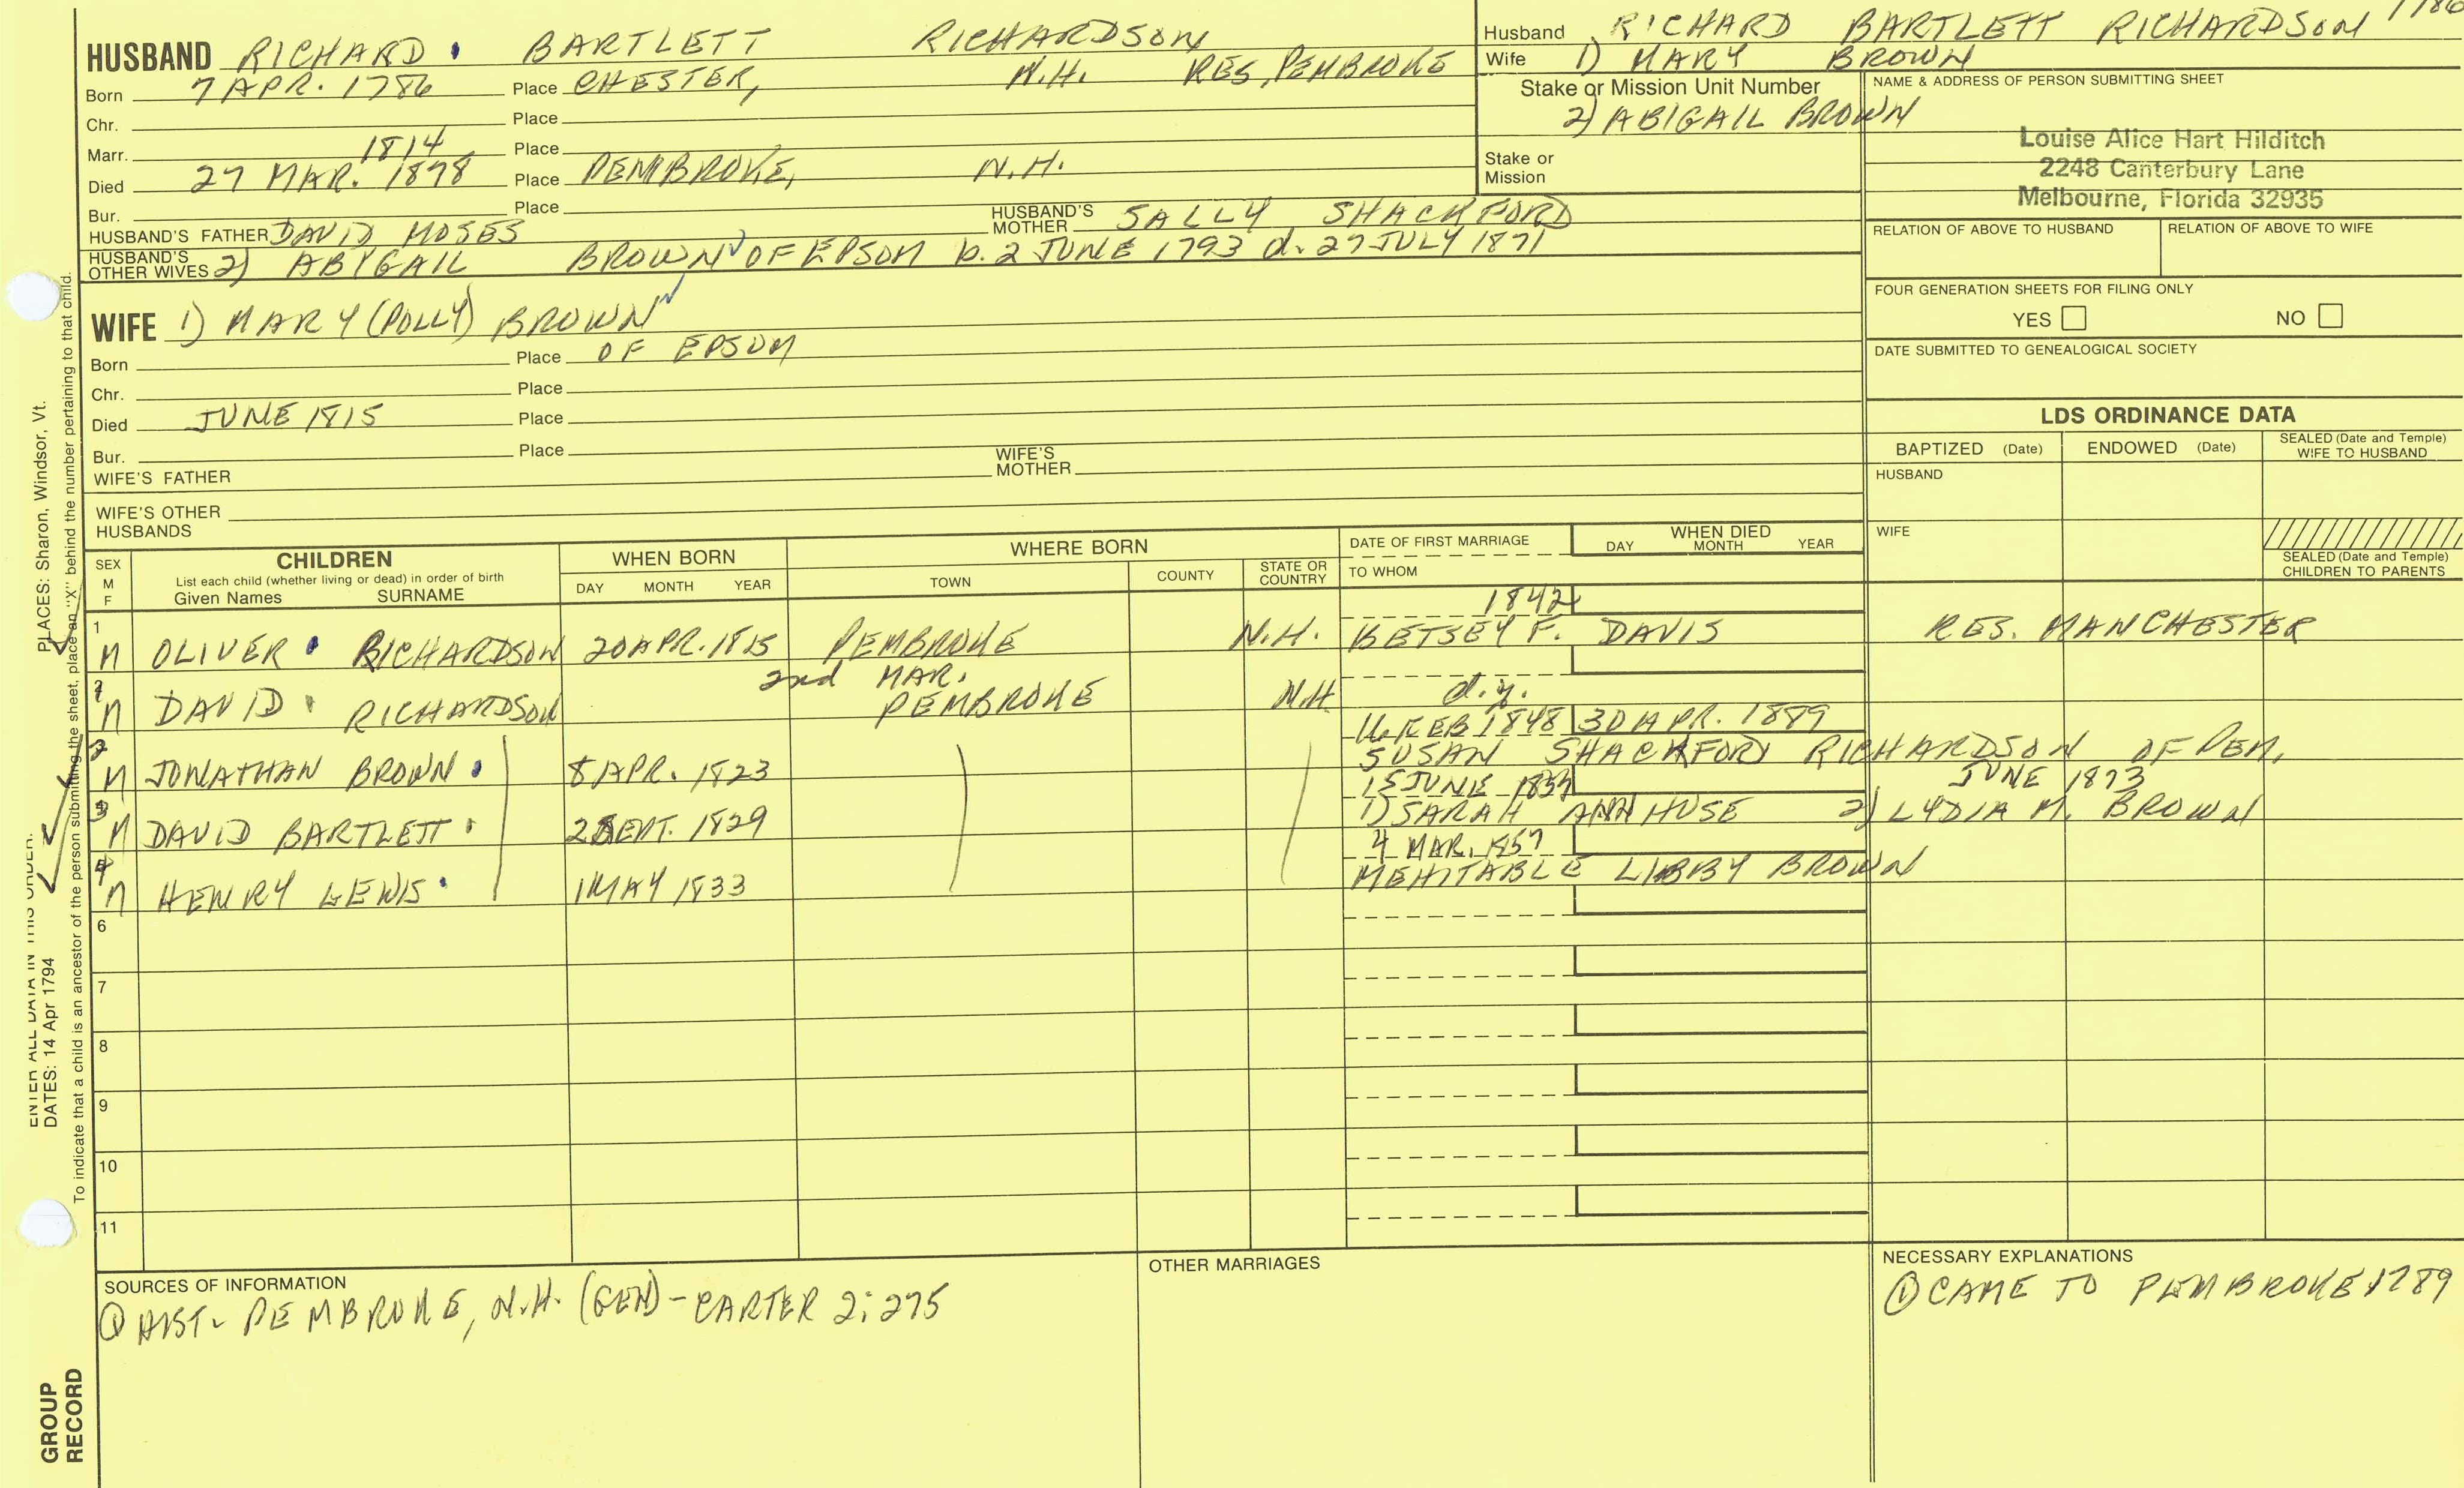 HUSBAND RICHARD BARTLETT RICHARDSON
Born 7 APR. 1786 Place CHESTER, N.H. RES, PEMBROKE
Chr. Place
Marr. 1814 Place
Died 27 MAR. 1878 Place PEMBROKE, N.H.
Bur. Place
HUSBAND'S FATHER DAVID MOSES HUSBAND'S MOTHER SALLY SHACKFORD
HUSBAND'S OTHER WIVES 2) ABIGAIL BROWN OF EPSOM b. 2 JUNE 1793 d. 27 JULY 1871
WIFE 1) MARY (POLLY) BROWN
Born Place OF EPSOM
Chr. Place
Died JUNE 1815 Place
Bur. Place
WIFE'S FATHER WIFE'S MOTHER
WIFE'S OTHER HUSBANDS
Husband RICHARD BARTLETT RICHARDSON 1786
Wife 1) MARY BROWN
Stake or Mission Unit Number
2) ABIGAIL BROWN
Stake or Mission
NAME & ADDRESS OF PERSON SUBMITTING SHEET
Louise Alice Hart Hilditch
2248 Canterbury Lane
Melbourne, Florida 32935
RELATION OF ABOVE TO HUSBAND RELATION OF ABOVE TO WIFE
FOUR GENERATION SHEETS FOR FILING ONLY
YES NO
DATE SUBMITTED TO GENEALOGICAL SOCIETY
LDS ORDINANCE DATA
BAPTIZED (Date) ENDOWED (Date) SEALED (Date and Temple) WIFE TO HUSBAND
HUSBAND
WIFE
SEALED (Date and Temple) CHILDREN TO PARENTS
SEX M F CHILDREN WHEN BORN WHERE BORN DATE OF FIRST MARRIAGE WHEN DIED
List each child (whether living or dead) in order of birth
Given Names SURNAME DAY MONTH YEAR TOWN COUNTY STATE OR COUNTRY TO WHOM DAY MONTH YEAR
1842
1 M OLIVER RICHARDSON 20 APR. 1815 PEMBROKE N.H. BETSEY F. DAVIS RES. MANCHESTER
2nd MAR.
M DAVID RICHARDSON PEMBROKE N.H. d.y.
16 FEB 1848 30 APR. 1889
M JONATHAN BROWN 8 APR. 1823 SUSAN SHACKFORD RICHARDSON OF PEM.
15 JUNE JUNE 1873
3 M DAVID BARTLETT SEPT. 1829 1) SARAH ANN HUSE 2) LYDIA M. BROWN
4 MAR. 1857
4 M HENRY LEWIS 1 MAY 1833 MEHITABLE LIBBY BROWN
6
7
8
9
10
11
SOURCES OF INFORMATION
① HIST. PEMBROKE, N.H. (GEN) - CARTER 2: 275
OTHER MARRIAGES
NECESSARY EXPLANATIONS
① CAME TO PEMBROKE 1789
ENTER ALL DATA IN THIS ORDER:
DATES: 14 Apr 1794 PLACES: Sharon, Windsor, Vt.
To indicate that a child is an ancestor of the person submitting the sheet, place an "X" behind the number pertaining to that child.
GROUP
RECORD